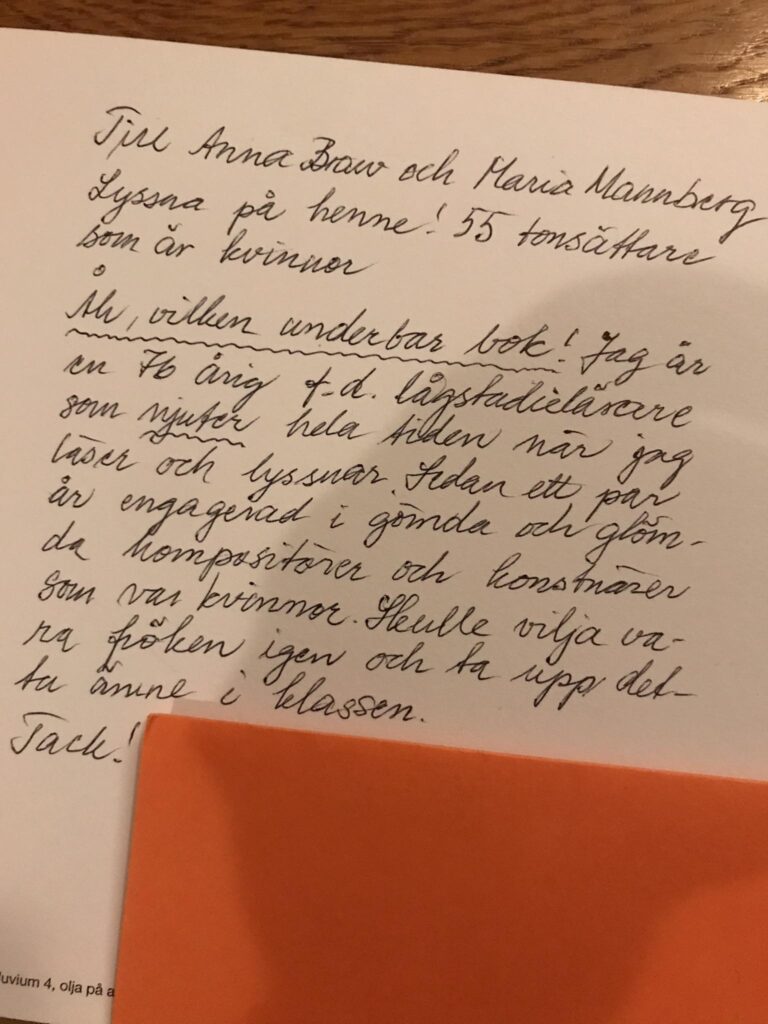 Till Anna Braw och Maria Mannberg
Lyssna på henne! 55 tonsättare
som är kvinnor
Åh, vilken underbar bok! Jag är
en 76 årig f.d. lågstadielärare
som njuter hela tiden när jag
läser och lyssnar. Sedan ett par
år engagerad i gömda och glöm-
da kompositörer och konstnärer
som var kvinnor. Skulle vilja va-
ra fröken igen och ta upp det-
ta ämne i klassen.
Tack!
luvium 4, olja på a